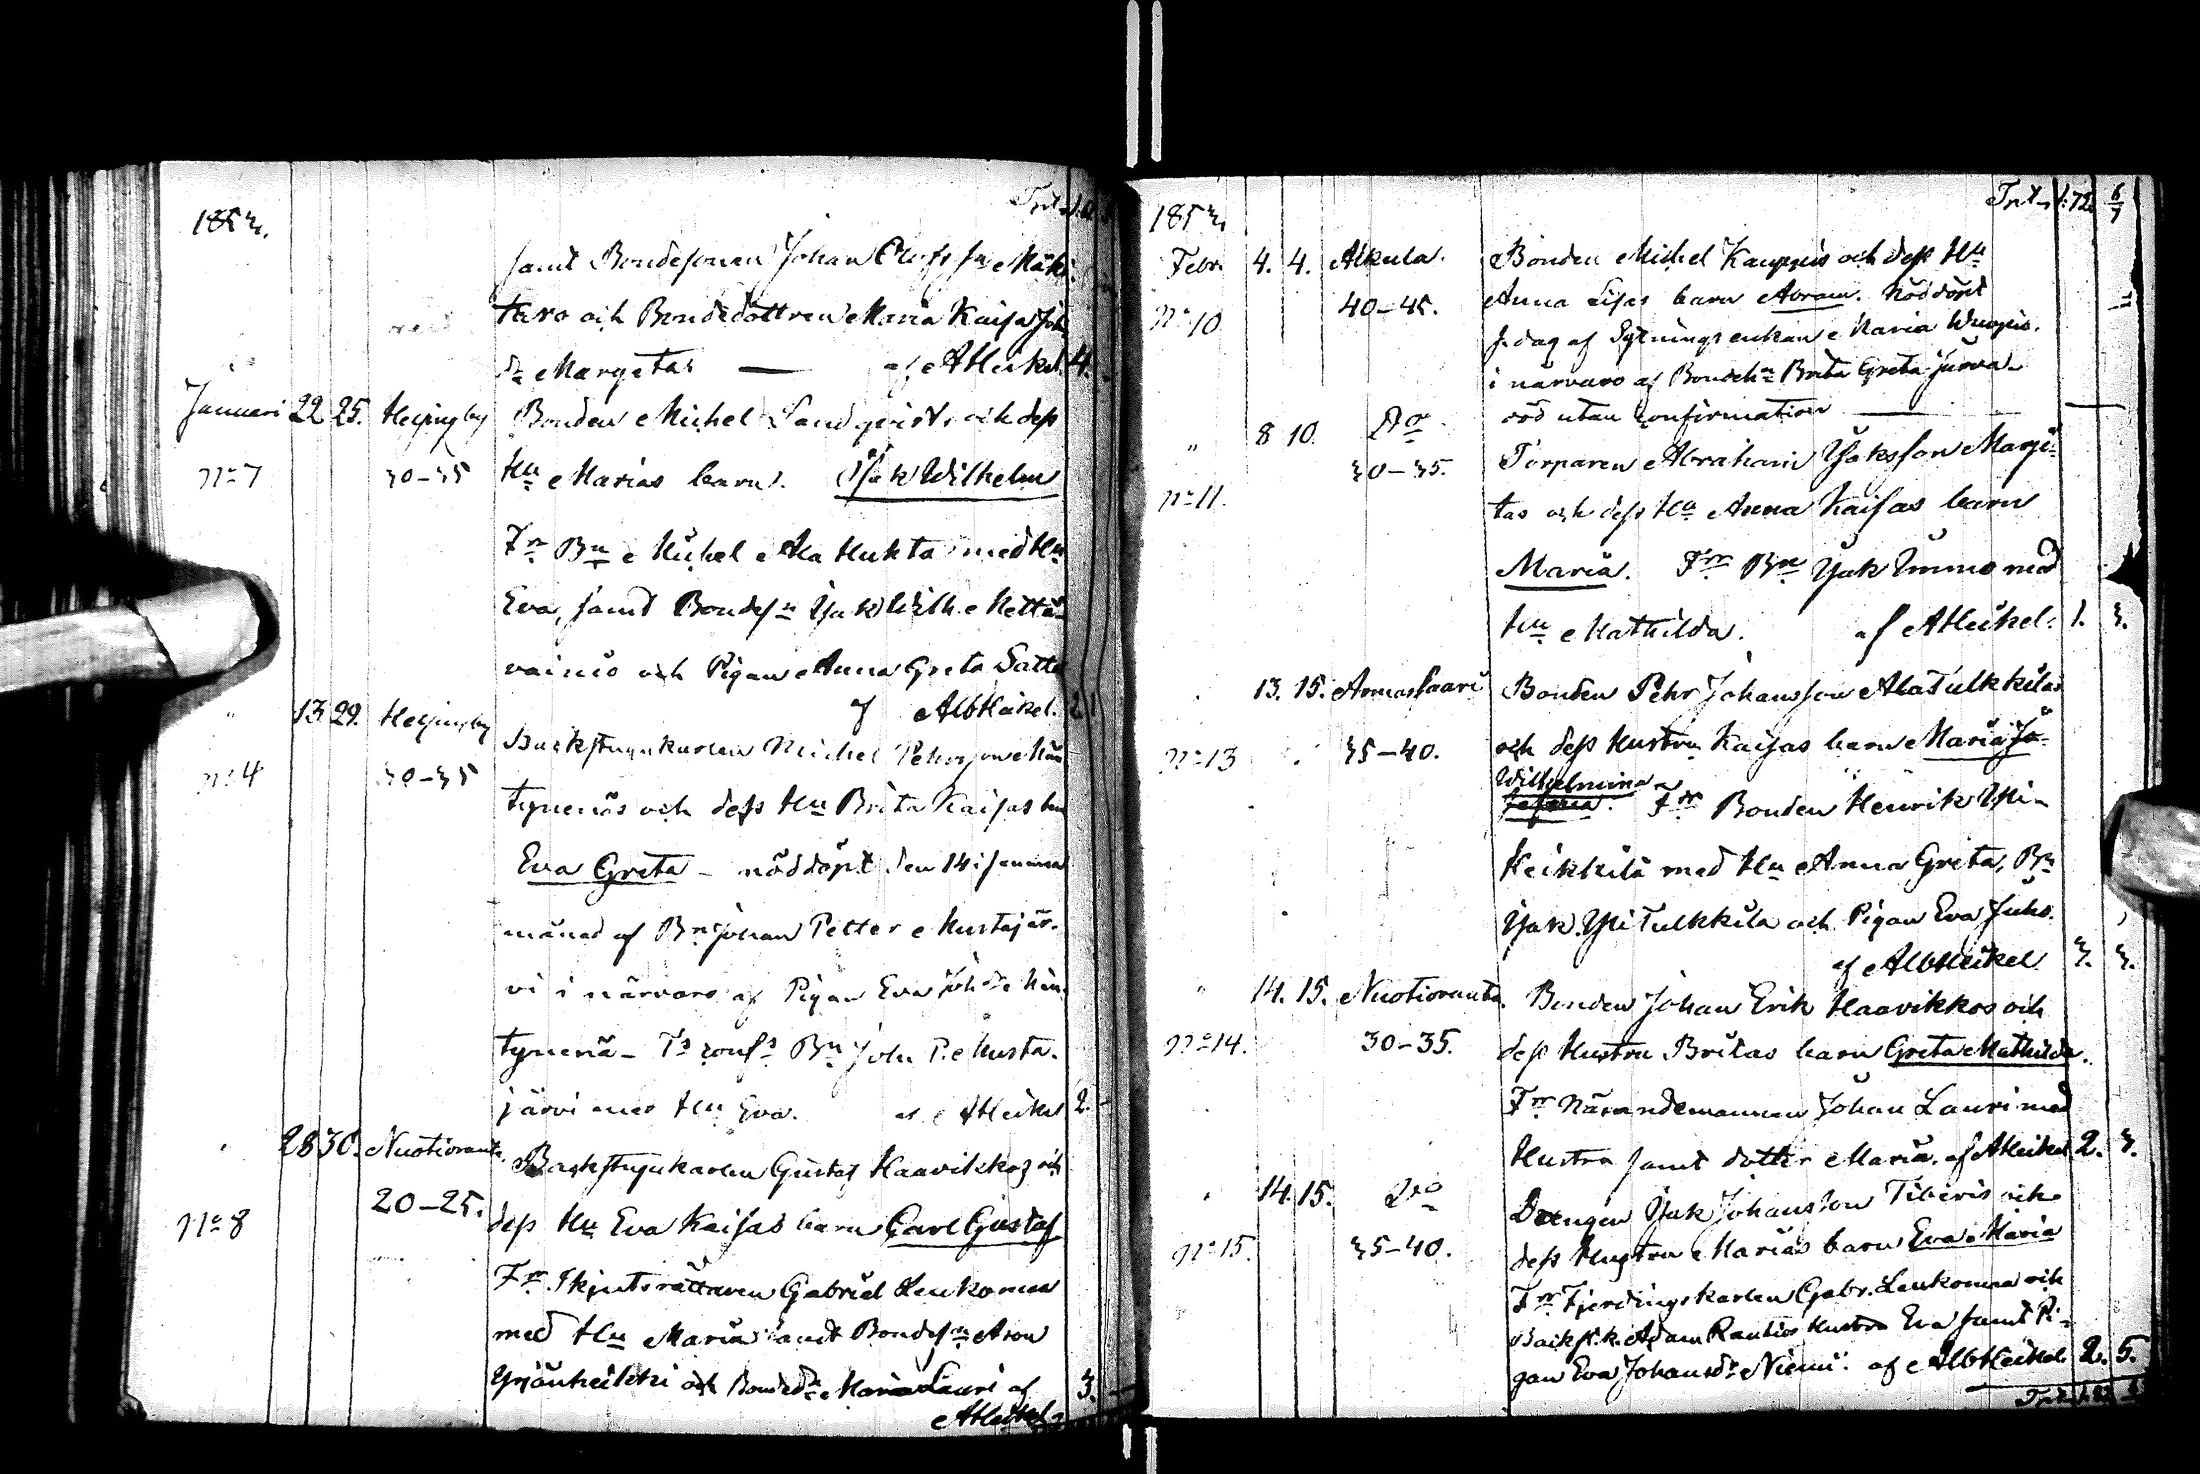 185
Trpt
samt Bondesonen Johan Olofss:n Mäki
taro och Bondedottren Maria Kaisa Joh
dr Margetas — af AHeikel. 4.
Januari 22. 25. Helsingby Bonden Michel Landqvists och dess
No 7 30-35 Hu Marias barn. Isak Wilhelm
Fr Bn Michel Ala Huhta med Hu
Eva, samt Bondesn Isak Wilh.
vainio och Pigan Anna Greta Latta
af AlbHeikel. 2
" 13 29. Helsingby Backstugukarlen Michel Pehrsson Män
No 4 30-35 tynenäs och dess Hu Brita Kaisas bn
Eva Greta - nöddöpt den 14 i samma
månad af Bn Johan Petter Mustajär-
vi i närvaro af Pigan Eva Joh dr Män
tynenä - Bn Joh P. Musta-
järvi med Hu Eva. af AHeikel 2.
" 28 30. Nuotioranta. Backstugukarlen Gustaf Haavikkos och
No 8 20-25. dess Hu Eva Kaisas barn Carl Gustaf
Fr. Skjutsrättaren Gabriel Leukonen
med Hu Maria samt Bondesn Aron
Yrjänheikki och Bonded:r Maria Lauri af
AHeikel 3.
185
Trpt 1:72. 6/7
Febr. 4. 4. Alkula. Bonden Michel Kauppis och dess Hu
No 10. 40-45. Anna Lisas barn Abram. Nöddöpt
s. dag af Sytningsenkan Maria
i närvaro af Bondeh:n Brita Greta
död utan confirmation —
" 8 10. Do Torparen Abraham Isaksson Marje-
No 11. 30-35. tas och dess Hu Anna Kaisas barn
Maria. Frr Bn Isak Immo med
Hu Mathilda. af AHeikel. 1. 3.
" 13. 15. Armassaari Bonden Pehr Johansson AlaTulkkilas
No 13 35-40. och dess hustru Kaisas barn Maria Jo-
Wilhelmina
sefina. Frr Bonden Henrik Yli-
Heikkilä med Hu Anna Greta, Bn
Isak YliTulkkila och Pigan Eva Juho.
af AlbHeikel 3. 3.
" 14. 15. Nuotioranta. Bonden Johan Erik Haavikkos och
No 14. 30-35. dess Hustru Britas barn Greta Mathilda.
Frr Nämndemannen Johan Lauri med
Hustru samt dotter Maria. af AHeikel 2. 3.
" 14. 15. Do Drengen Isak Johansson Tiberis och
No 15. 35-40. dess Hustru Marias barn Eva Maria
Frr Fjerdingskarlen Gabr. Leukonen och
Backst.k. Adam Rautios Hustru Eva samt Pi-
gan Eva Johansdr Niemi. af AlbHeikel 2. 5.
Trpt